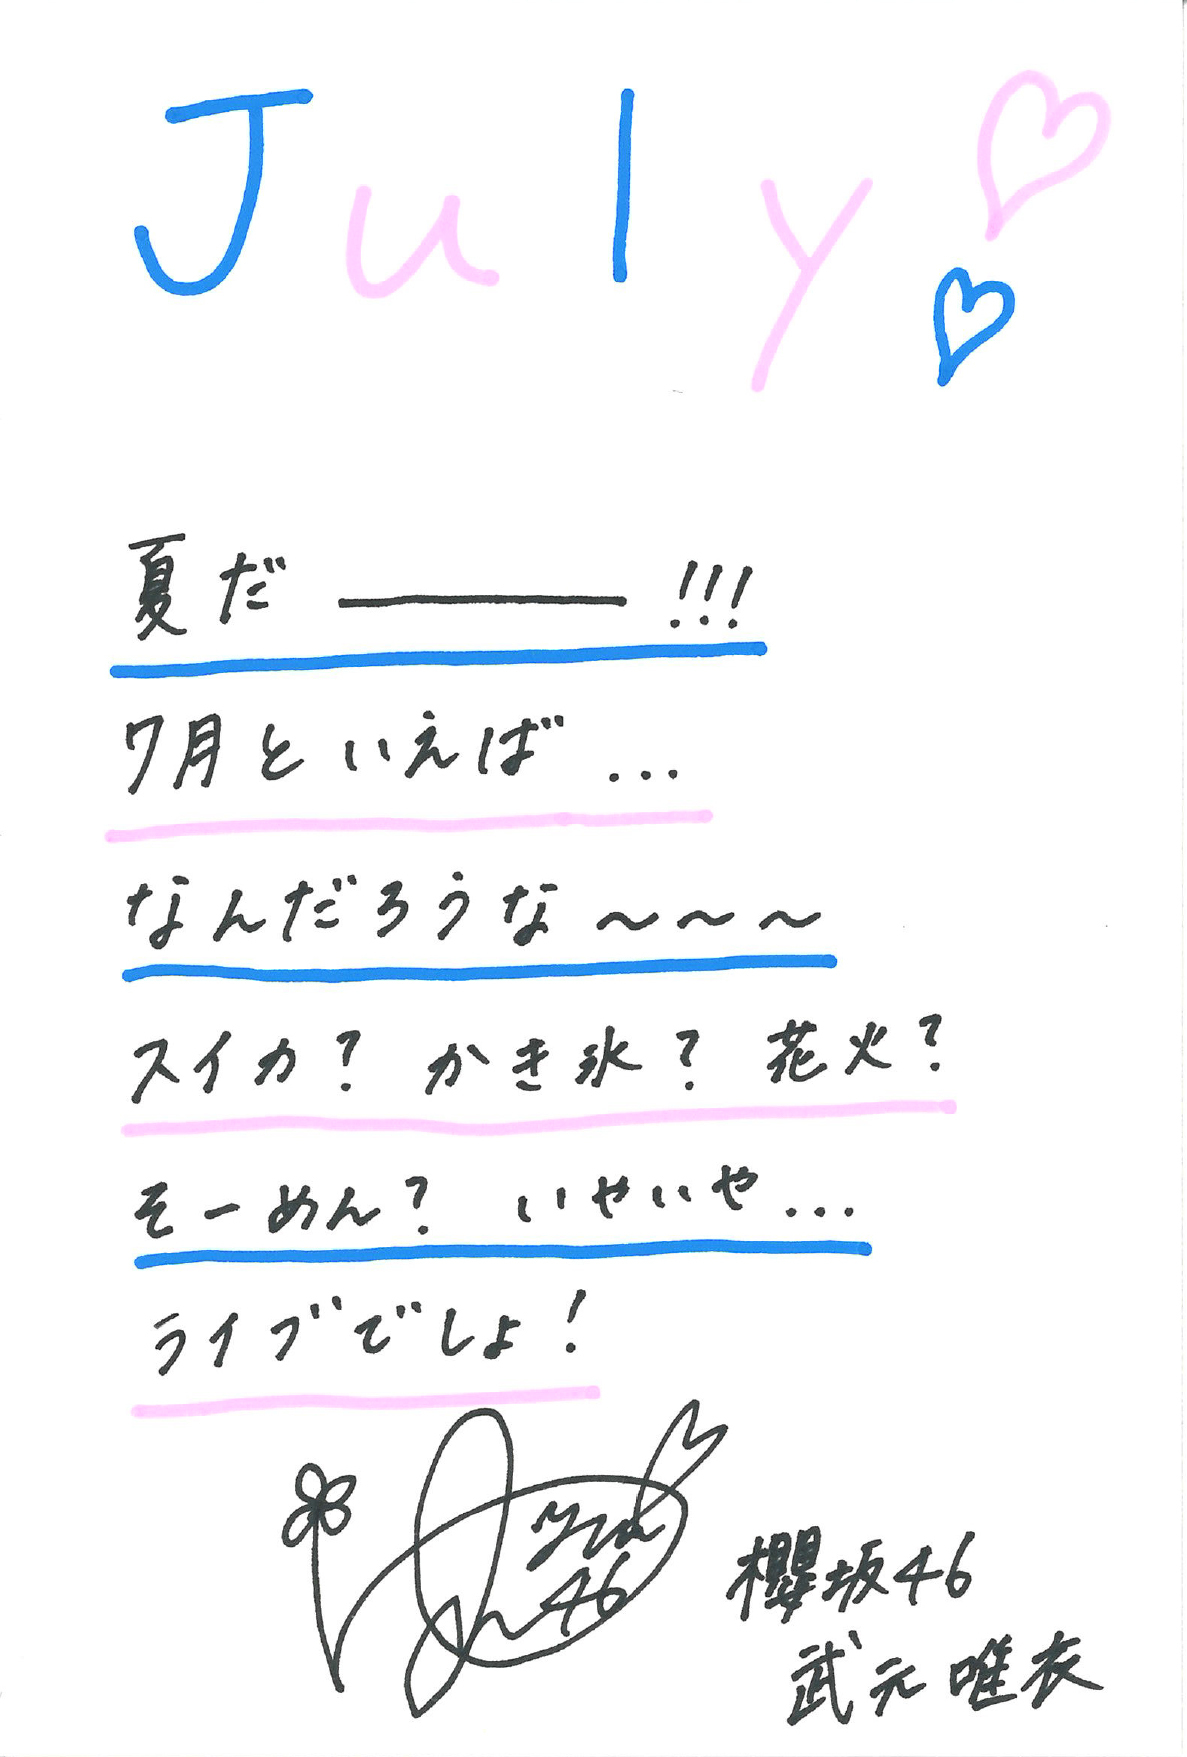 July
夏だ――――!!!
7月といえば...
なんだろうな〜〜〜
スイカ? かき氷? 花火?
そーめん? いやいや...
ライブでしょ!
yui
46
櫻坂46
武元唯衣